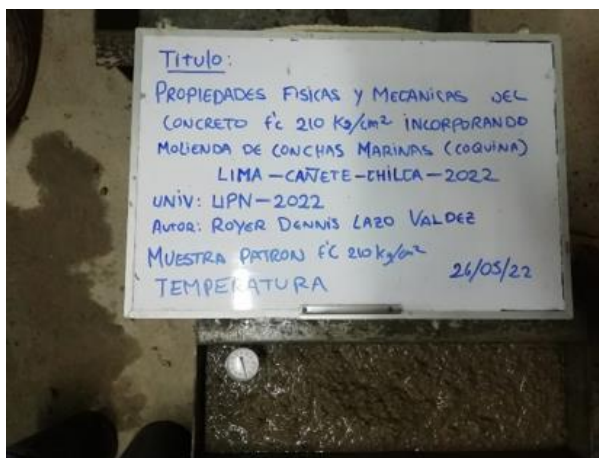 Titulo:
PROPIEDADES FISICAS Y MECANICAS DEL
CONCRETO f'c 210 Kg/cm² INCORPORANDO
MOLIENDA DE CONCHAS MARINAS (COQUINA)
LIMA - CAÑETE - CHILCA - 2022
UNIV: UPN - 2022
AUTOR: ROYER DENNIS LAZO VALDEZ
MUESTRA PATRON f'C 210 kg/cm²
TEMPERATURA 26/05/22